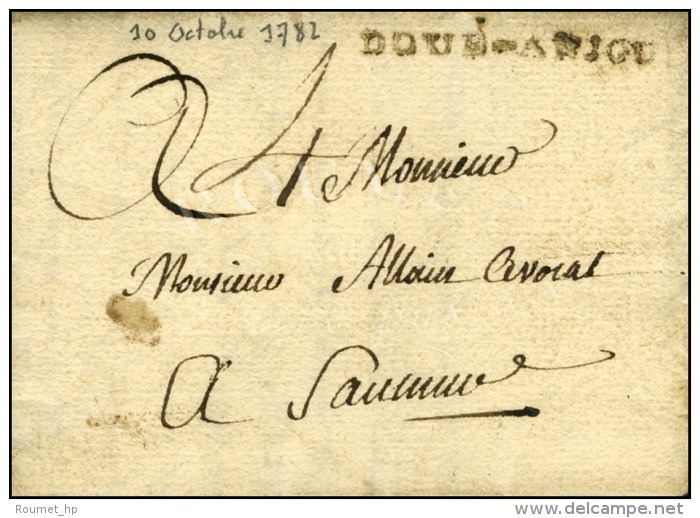 10 Octobre 1782
DOUÉ-ANJOU
4 Monsieur
Monsieur Allain Avocat
A Saumur
Roumet_hp
delcampe.net